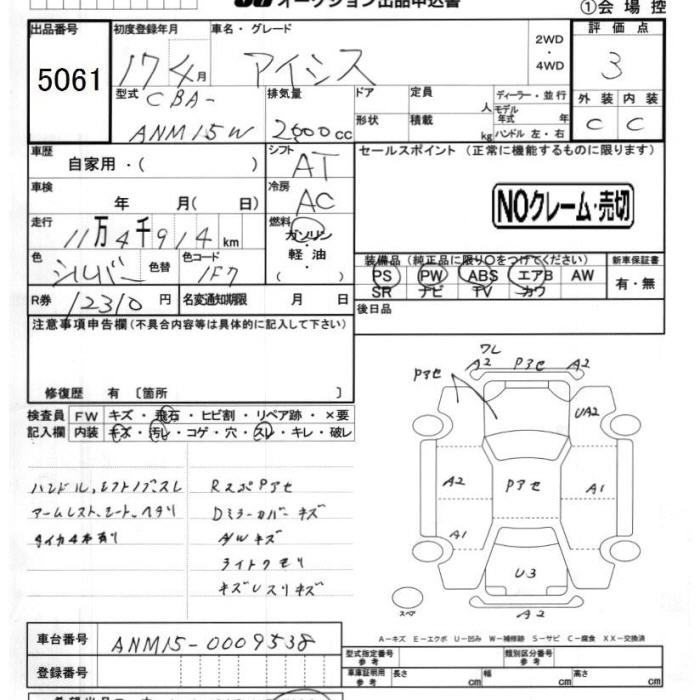 オークション出品申込書
①会場控
出品番号 初度登録年月 車名・グレード 2WD・4WD 評価点
5061 17 4月 アイシス 3
型式 CBA- 排気量 ドア 定員 人 ディーラー・並行 外装 内装
ANM15W 2000cc 形状 積載 kg モデル年式 年 C C
ハンドル 左・右
車歴 シフト セールスポイント (正常に機能するものに限ります)
自家用・( ) AT
車検 年 月( 日) 冷房 AC NOクレーム・売切
走行 11万4千914km 燃料 ガソリン・軽油・( )
色 シルバー 色替 色コード 1F7
装備品(純正品に限り○をつけてください) 新車保証書
PS PW ABS エアB AW 有・無
SR ナビ TV カワ
R券 12310円 名変通知期限 月 日 後日品
注意事項申告欄(不具合内容等は具体的に記入して下さい)
修復歴 有 〔箇所 〕
検査員 FW キズ・飛石・ヒビ割・リペア跡・×要
記入欄 内装 キズ・汚レ・コゲ・穴・スレ・キレ・破レ
ハンドル、シフトノブスレ RスポPアセ
アームレスト、シート、ヘタリ Dミラーカバーキズ
タイヤ4本有り AWキズ
ライトクモリ
キズレスリキズ
ワレ
Pアセ A2 Pアセ A2
UA2
A2 Pアセ A1
A1
U3
スペア A2
A-キズ E-エクボ U-凹み W-補修跡 S-サビ C-腐食 XX-交換済
車台番号 ANM15-0009538
型式指定番号 参考 類別区分番号 参考
登録番号 車庫証明用 参考 長さ cm 幅 cm 高さ cm